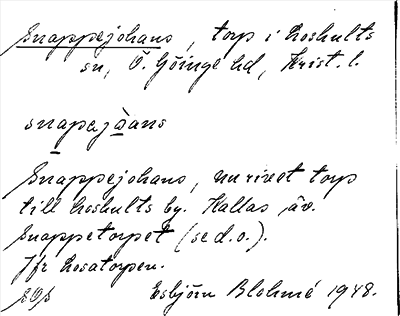 Snappejohans, torp i Loshults
sn, Ö. Göinge hd, Krist. l.
snapejåans
Snappejohans, nu rivet torp
till Loshults by. Kallas äv.
Snappetorpet (se d.o.).
Jfr Losatorpen.
Esbjörn Blohmé 1948.